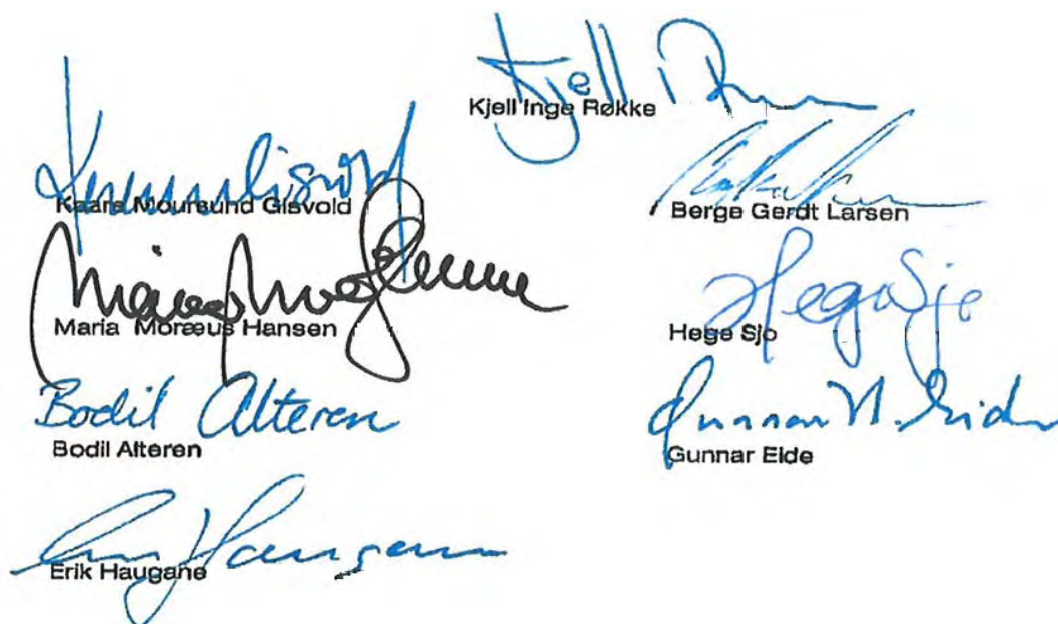 Kjell I
Kjell Inge Røkke
Kaare Moursund Gisvold
Berge Gerdt Larsen
Maria Moræus Hansen
Hege Sjo
Hege Sjo
Bodil Alteren
Bodil Alteren
Gunnar N. Eide
Gunnar Eide
Erik Haugane